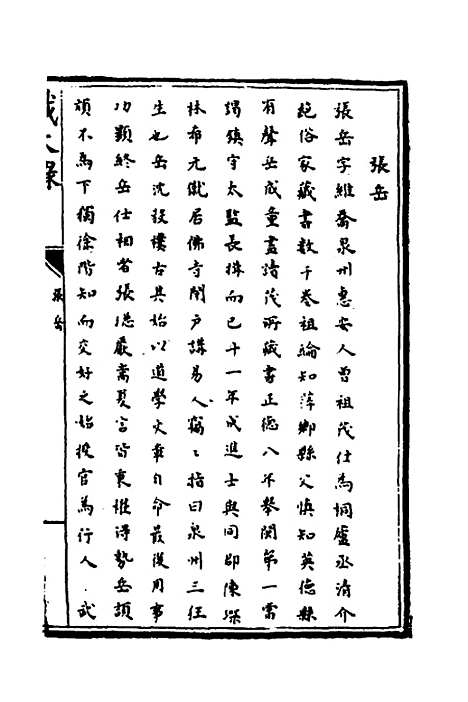 張岳
張岳字維喬泉州惠安人曾祖茂仕為桐廬丞清介
絕俗家藏書數千卷祖綸知萍鄉縣父慎知英德縣
有聲岳成童盡讀茂所藏書正德八年舉閩第一嘗
謁鎮守太監長揖而已十一年成進士與同郡陳琛
林希元僦居佛寺閉戶講易人竊竊指曰泉州三狂
生也岳沈毅樸古其始以道學文章自命最後用事
功顯終岳仕相者張璁嚴嵩夏言皆東權得勢岳頡
頏不為下獨徐階知而交好之始授官為行人武
張岳